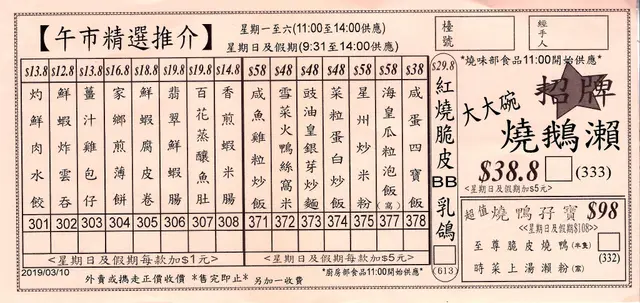 【午市精選推介】
星期一至六(11:00至14:00供應)
星期日及假期(9:31至14:00供應)
檯號
經手人
$13.8 $12.8 $13.8 $16.8 $18.8 $19.8 $19.8 $14.8 $58 $48 $48 $48 $58 $58 $38
灼鮮肉水餃 301
鮮蝦炸雲吞 302
薑汁雞包仔 303
家鄉煎薄餅 304
鮮蝦腐皮卷 305
翡翠鮮蝦腸 306
百花蒸釀魚肚 307
香煎蝦米腸 308
咸魚雞粒炒飯 371
雪菜火鴨絲窩米 372
豉油皇銀芽炒麵 373
菜粒蛋白炒飯 374
星州炒米粉 375
海皇瓜粒泡飯(窩) 377
咸蛋四寶飯 378
<星期日及假期每款加$1元>
<星期日及假期每款加$5元>
2019/03/10
外賣或攜走正價收價 *售完即止* 另加一收費
*廚房部食品11:00開始供應*
$29.8
紅燒脆皮BB乳鴿
(613)
*燒味部食品11:00開始供應*
招牌
大大碗
燒鵝瀨
$38.8 (333)
<星期日及假期加$5元>
超值 燒鴨孖寶 $98
<星期日及假期$108>
至尊脆皮燒鴨(半隻)
時菜上湯瀨粉(窩)
(332)